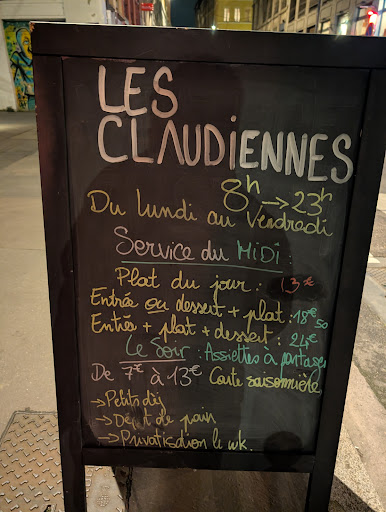 LES
CLAUDIENNES
8h → 23h
Du lundi au Vendredi
Service du MiDi :
Plat du jour : 13€
Entrée ou dessert + plat : 18€50
Entrée + plat + dessert : 24€
Le Soir : Assiettes à partager
De 7€ à 13€ Carte saisonnière
→ Petits dej
→ Depot de pain
→ Privatisation le wk.